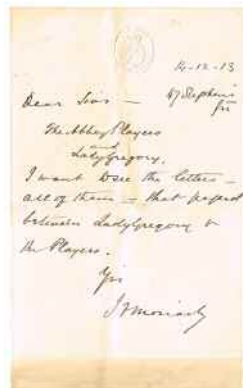 14-12-13
47 Stephens
Grn
Dear Sirs —
The Abbey Players
and
Lady Gregory.
I want to see the letters —
all of them — that passed
between Lady Gregory &
the Players.
Yrs